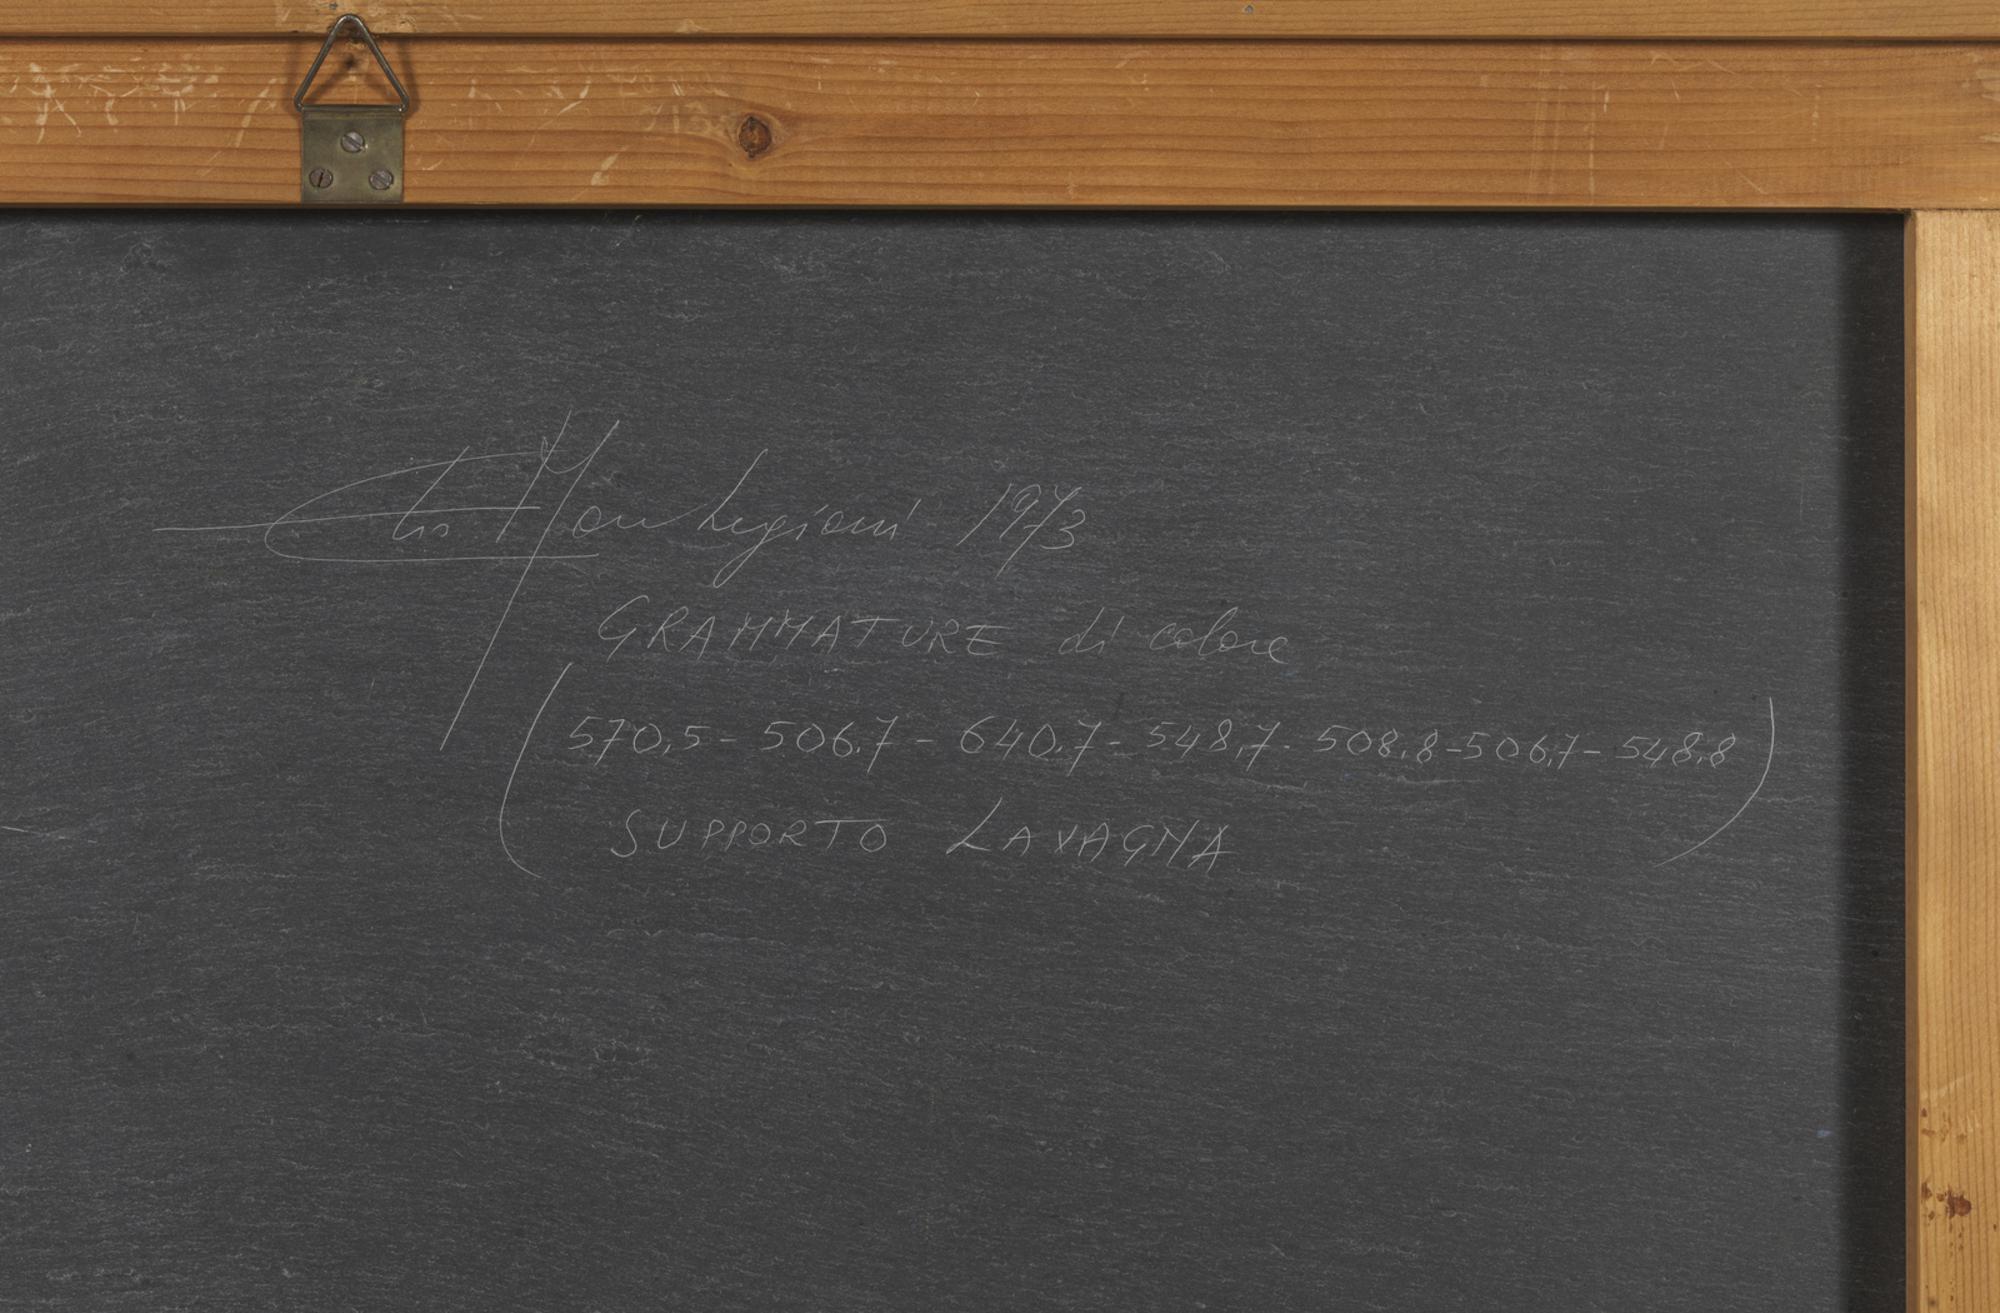 Elio Marchegiani 1973
GRAMMATURE di colore
(570,5 - 506,7 - 640,7 - 548,7 - 508,8 - 506,7 - 548,8)
SUPPORTO LAVAGNA